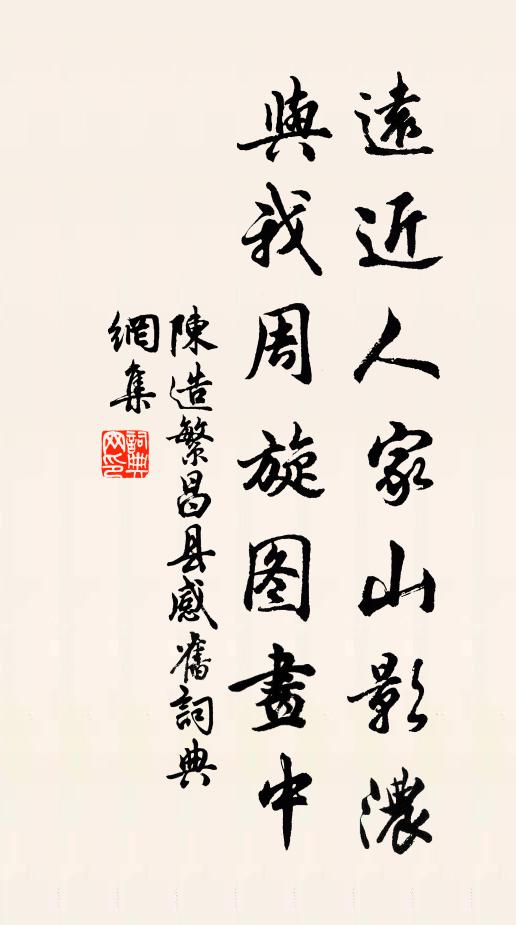 遠近人家山影濃
與我周旋图畫中
陳造繁昌县感舊詞典
網集
詞典網印